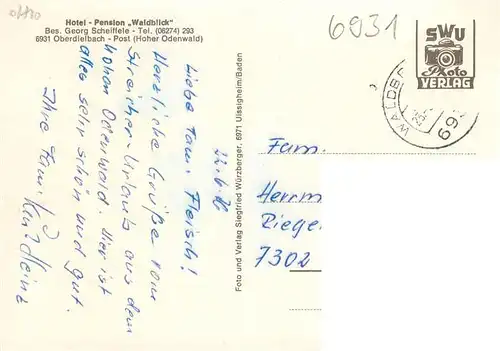 01180
6931
Hotel - Pension „Waldblick"
Bes. Georg Scheiffele - Tel. (06274) 293
6931 Oberdielbach - Post (Hoher Odenwald)
22.6.76
Liebe Fam. Fleisch!
Herzliche Grüße vom
Streicher-Urlaub aus dem
hohen Odenwald. Hier ist
alles sehr schön und gut.
Ihre Fam. Kurt Heinz
Foto und Verlag Siegfried Würzberger, 6971 Uissigheim/Baden
SWU
Photo
VERLAG
WALDBR
693
Fam.
Herrm
Riege
7302